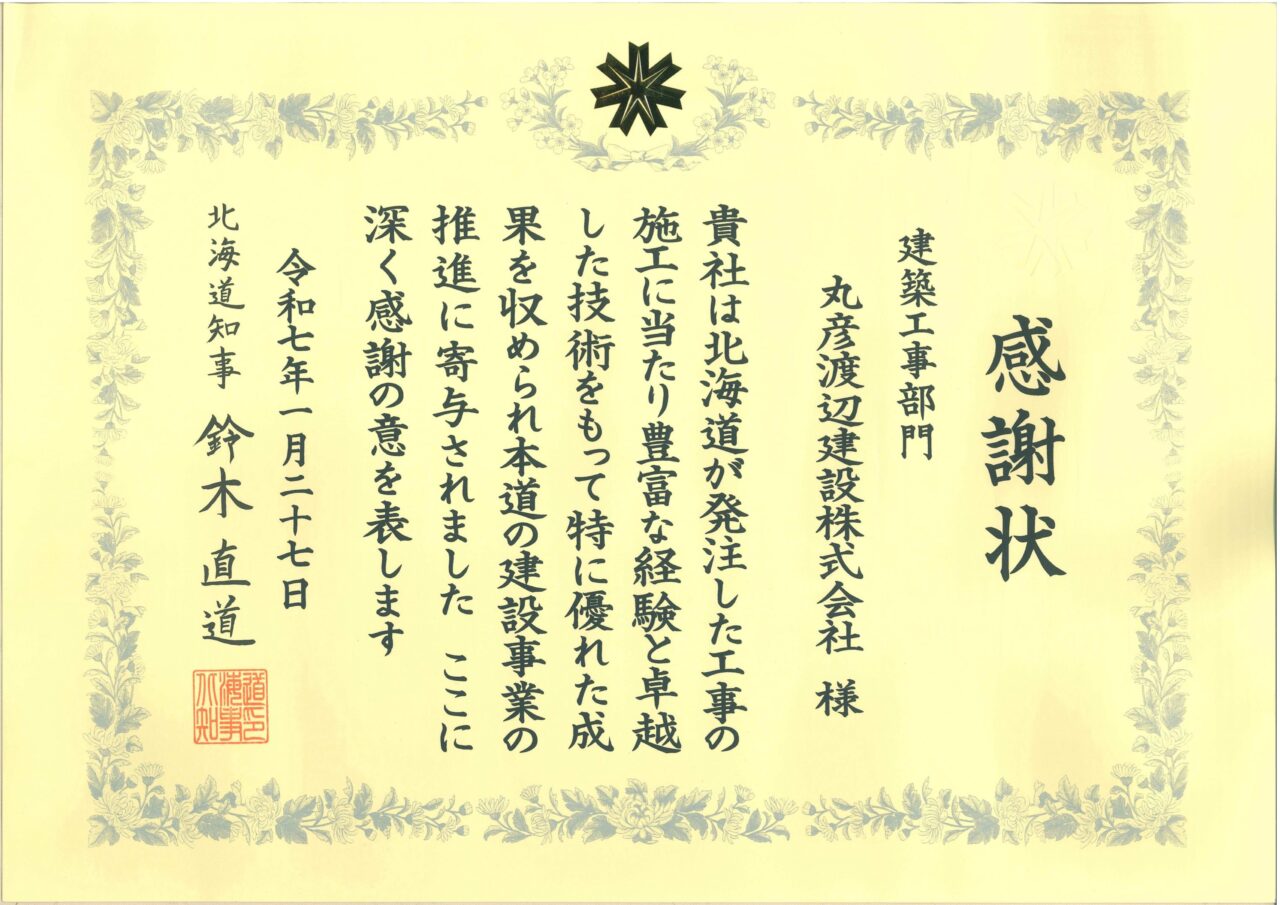 感謝状
建築工事部門
丸彦渡辺建設株式会社 様
貴社は北海道が発注した工事の
施工に当たり豊富な経験と卓越
した技術をもって特に優れた成
果を収められ本道の建設事業の
推進に寄与されました ここに
深く感謝の意を表します
令和七年一月二十七日
北海道知事 鈴木直道
北海道知事印